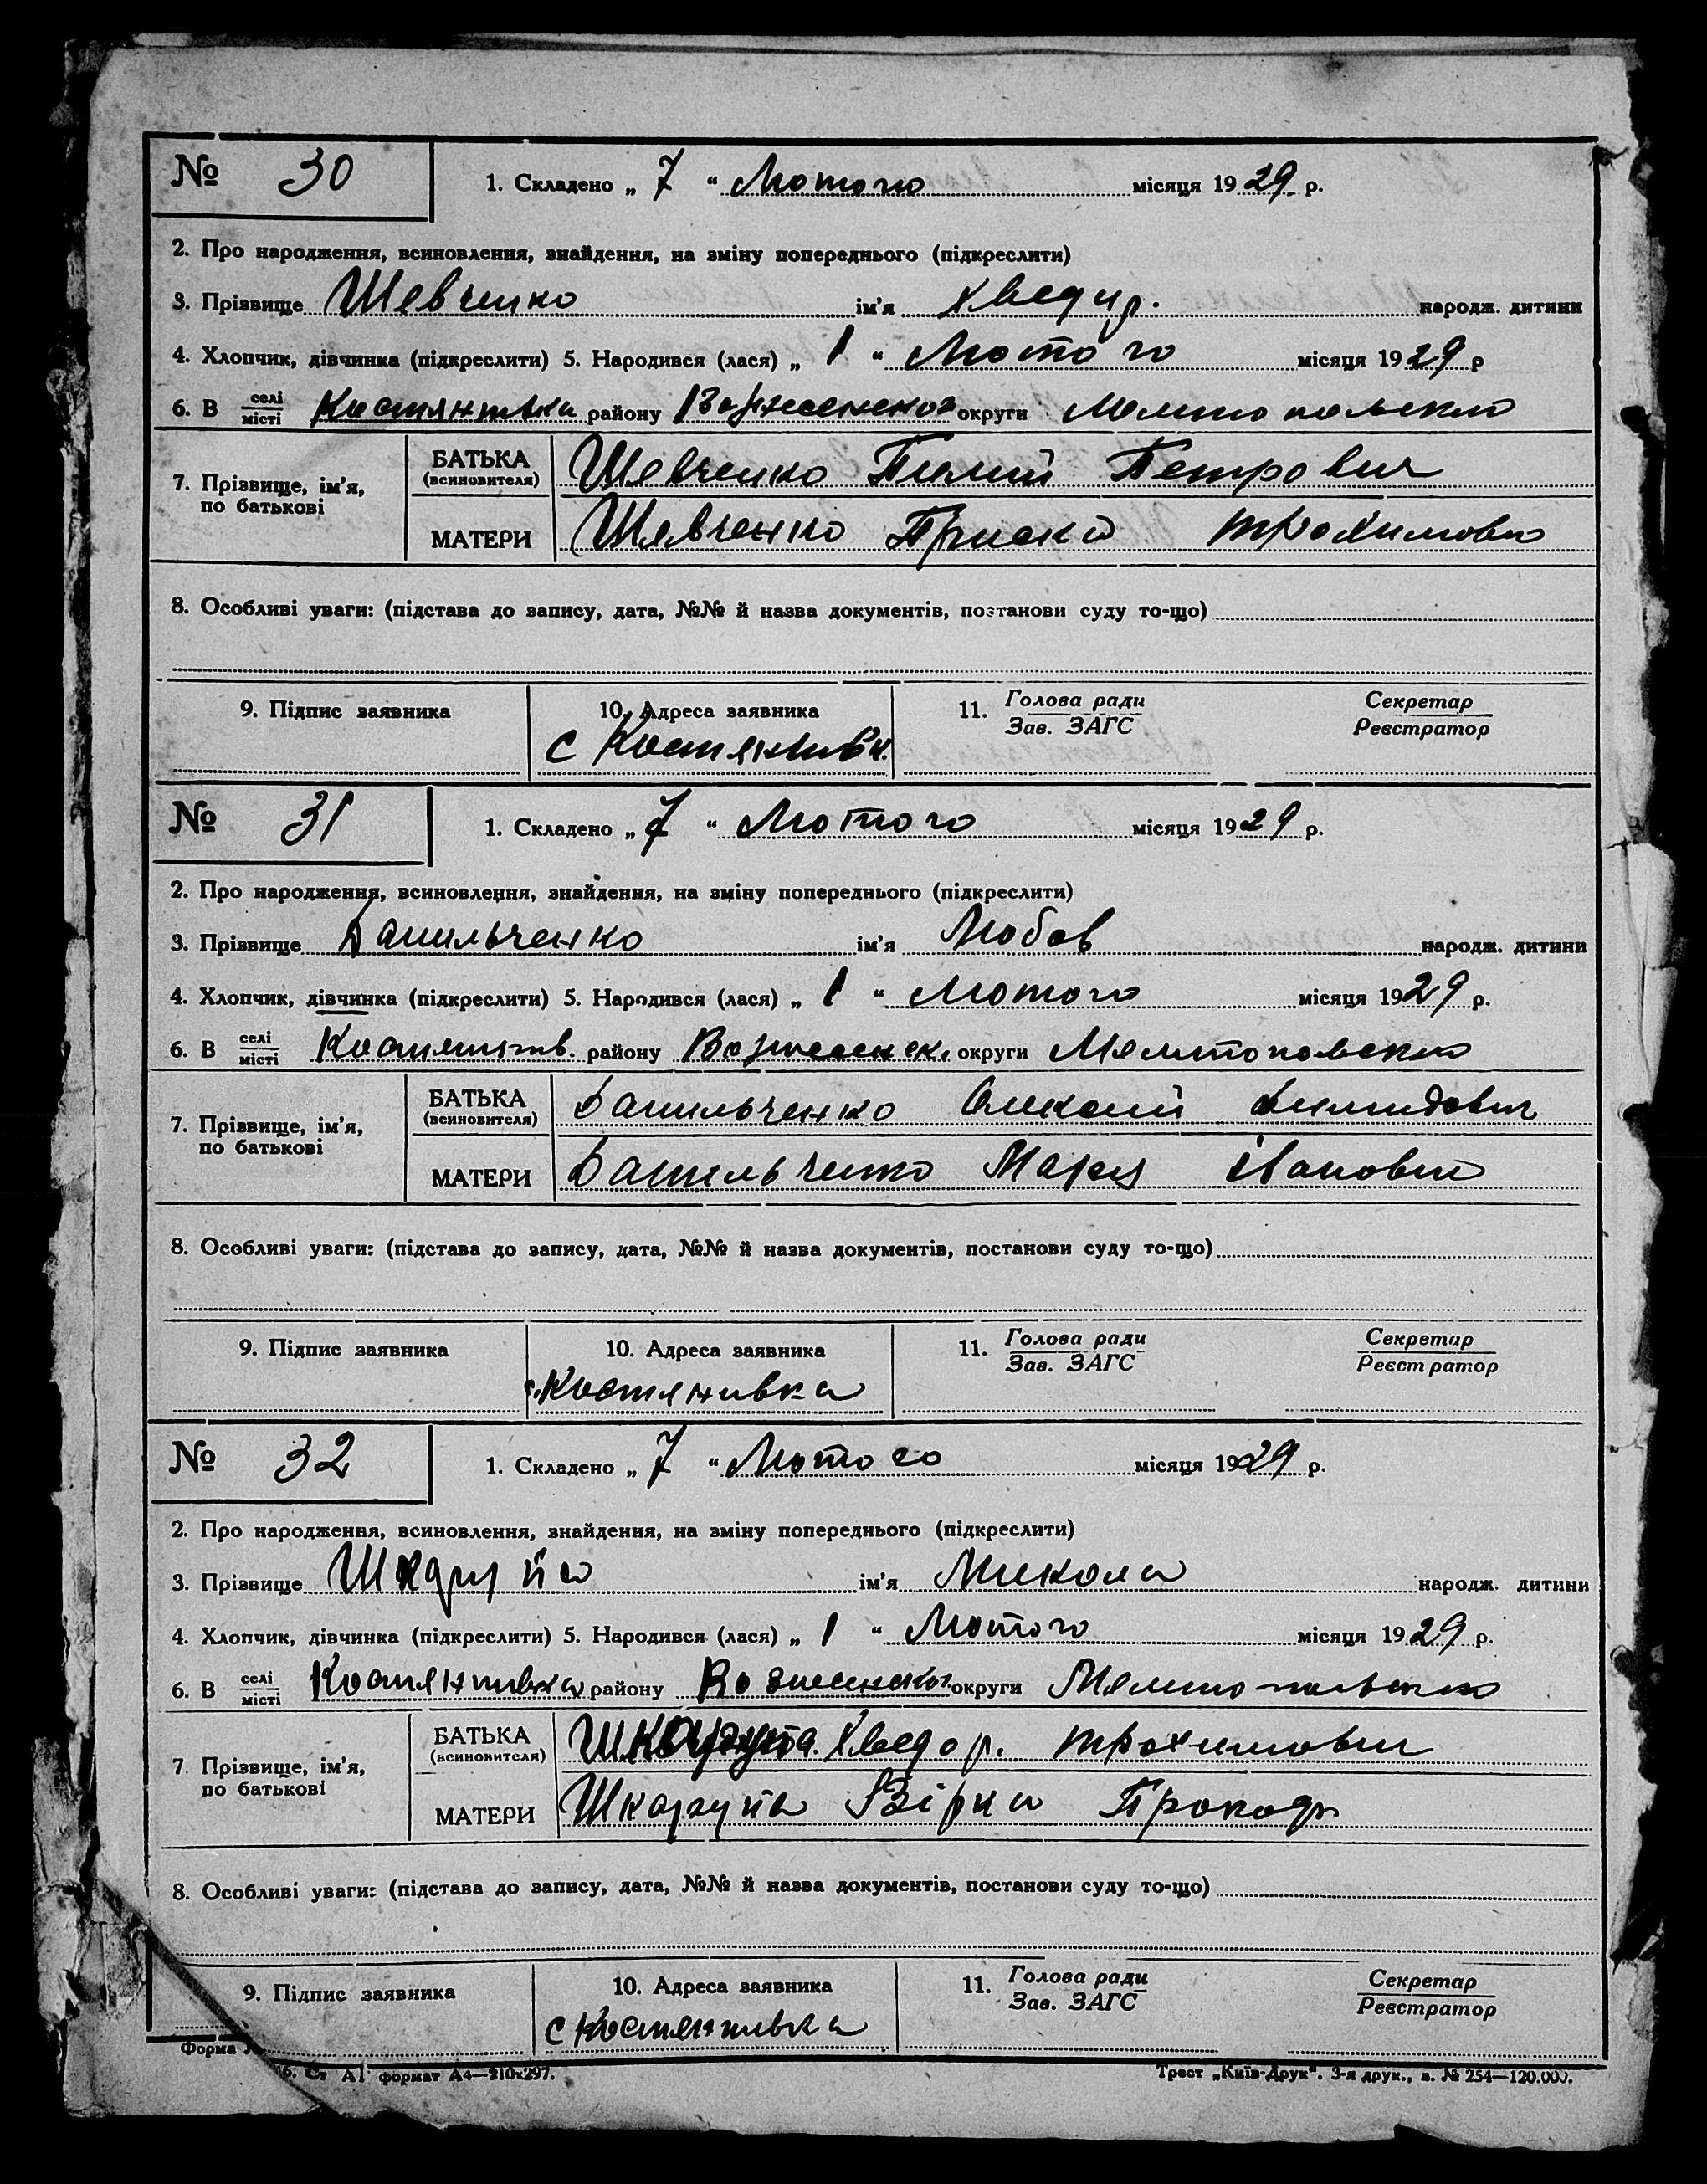 № 30 1. Складено „ 7 “ Лютого місяця 1929 р.
2. Про народження, всиновлення, знайдення, на зміну попереднього (підкреслити)
3. Прізвище Шевченко ім’я Хведир. народж. дитини
4. Хлопчик, дівчинка (підкреслити) 5. Народився (лася) „ 1 “ Лютого місяця 1929 р
6. В селі/місті Костянтівка району округи
7. Прізвище, ім’я, по батькові БАТЬКА (всиновителя) Шевченко Петрович
МАТЕРИ Шевченко Приська Трохимовна
8. Особливі уваги: (підстава до запису, дата, №№ й назва документів, постанови суду то-що)
9. Підпис заявника 10. Адреса заявника 11. Голова ради Секретар
Зав. ЗАГС Реєстратор
с
№ 31 1. Складено „ 7 “ Лютого місяця 1929 р.
2. Про народження, всиновлення, знайдення, на зміну попереднього (підкреслити)
3. Прізвище Данильченко ім’я Любов народж. дитини
4. Хлопчик, дівчинка (підкреслити) 5. Народився (лася) „ 1 “ Лютого місяця 1929 р.
6. В селі/місті району Вознесенськ. округи
7. Прізвище, ім’я, по батькові БАТЬКА (всиновителя) Данильченко Олексій
МАТЕРИ Данильченко Івановна
8. Особливі уваги: (підстава до запису, дата, №№ й назва документів, постанови суду то-що)
9. Підпис заявника 10. Адреса заявника 11. Голова ради Секретар
Зав. ЗАГС Реєстратор
с. Костянивка
№ 32 1. Складено „ 7 “ Лютого місяця 1929 р.
2. Про народження, всиновлення, знайдення, на зміну попереднього (підкреслити)
3. Прізвище ім’я Микола народж. дитини
4. Хлопчик, дівчинка (підкреслити) 5. Народився (лася) „ 1 “ Лютого місяця 1929 р.
6. В селі/місті Костянтивка району округи
7. Прізвище, ім’я, по батькові БАТЬКА (всиновителя) Хведор. Трохимович
МАТЕРИ Шкарупа Вірка
8. Особливі уваги: (підстава до запису, дата, №№ й назва документів, постанови суду то-що)
9. Підпис заявника 10. Адреса заявника 11. Голова ради Секретар
Зав. ЗАГС Реєстратор
с Костянтивка
Форма
формат А4—210х297. Трест „Київ-Друк“. 3-я друк., з. № 254—120.000.